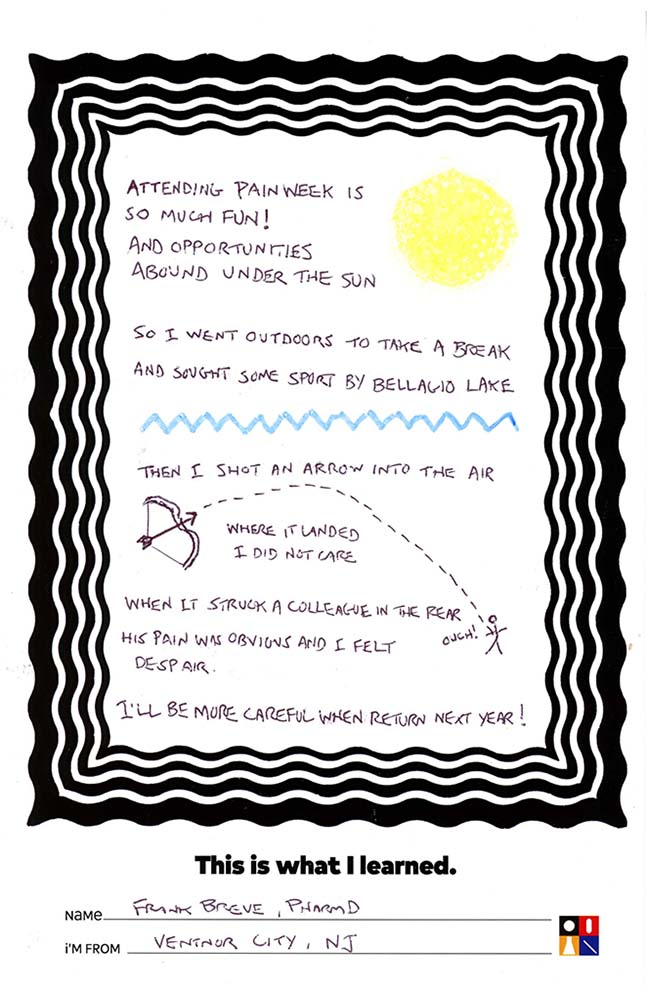 ATTENDING PAINWEEK IS
SO MUCH FUN!
AND OPPORTUNITIES
ABOUND UNDER THE SUN
SO I WENT OUTDOORS TO TAKE A BREAK
AND SOUGHT SOME SPORT BY BELLAGIO LAKE
THEN I SHOT AN ARROW INTO THE AIR
WHERE IT LANDED
I DID NOT CARE
WHEN IT STRUCK A COLLEAGUE IN THE REAR
OUCH!
HIS PAIN WAS OBVIOUS AND I FELT
DESPAIR.
I'LL BE MORE CAREFUL WHEN RETURN NEXT YEAR!
This is what I learned.
Name FRANK BREVE, PHARMD
i'M FROM VENTNOR CITY, NJ